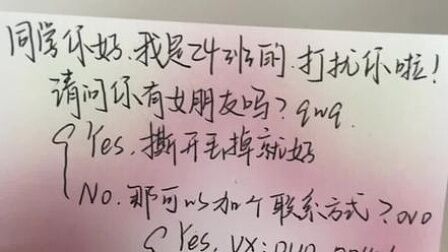 同学你好、我是24班的、打扰你啦！
请问你有女朋友吗？qwq.
Yes. 撕开丢掉就好
No. 那可以加个联系方式？ovo
Yes. VX: